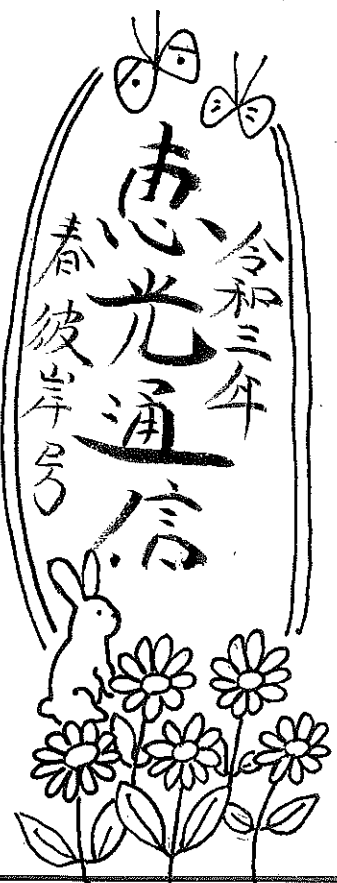 令和三年
恵光通信
春彼岸号